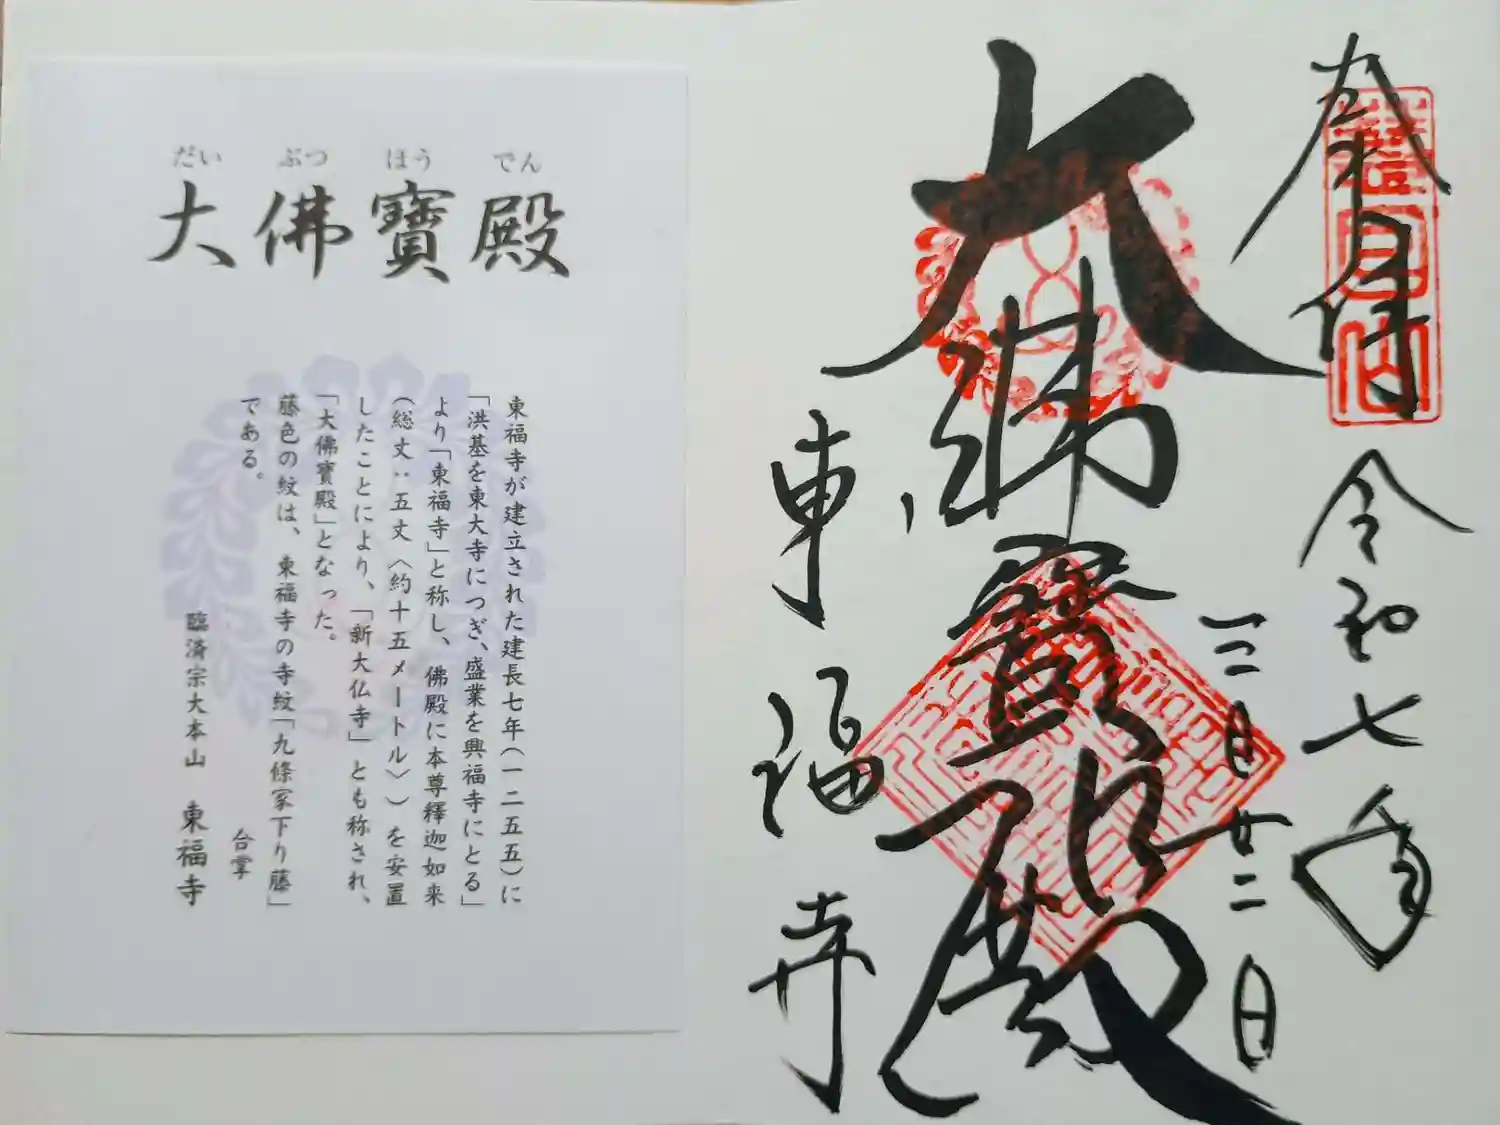 だい ぶつ ほう でん
大佛寶殿
東福寺が建立された建長七年(一二五五)に
「洪基を東大寺につぎ、盛業を興福寺にとる」
より「東福寺」と称し、佛殿に本尊釋迦如来
(総丈:五丈〈約十五メートル〉)を安置
したことにより、「新大仏寺」とも称され、
「大佛寶殿」となった。
藤色の紋は、東福寺の寺紋「九條家下り藤」
である。
合掌
臨済宗大本山 東福寺
奉拝
慧日山
令和七年
三月廿二日
大佛寶殿
東福寺